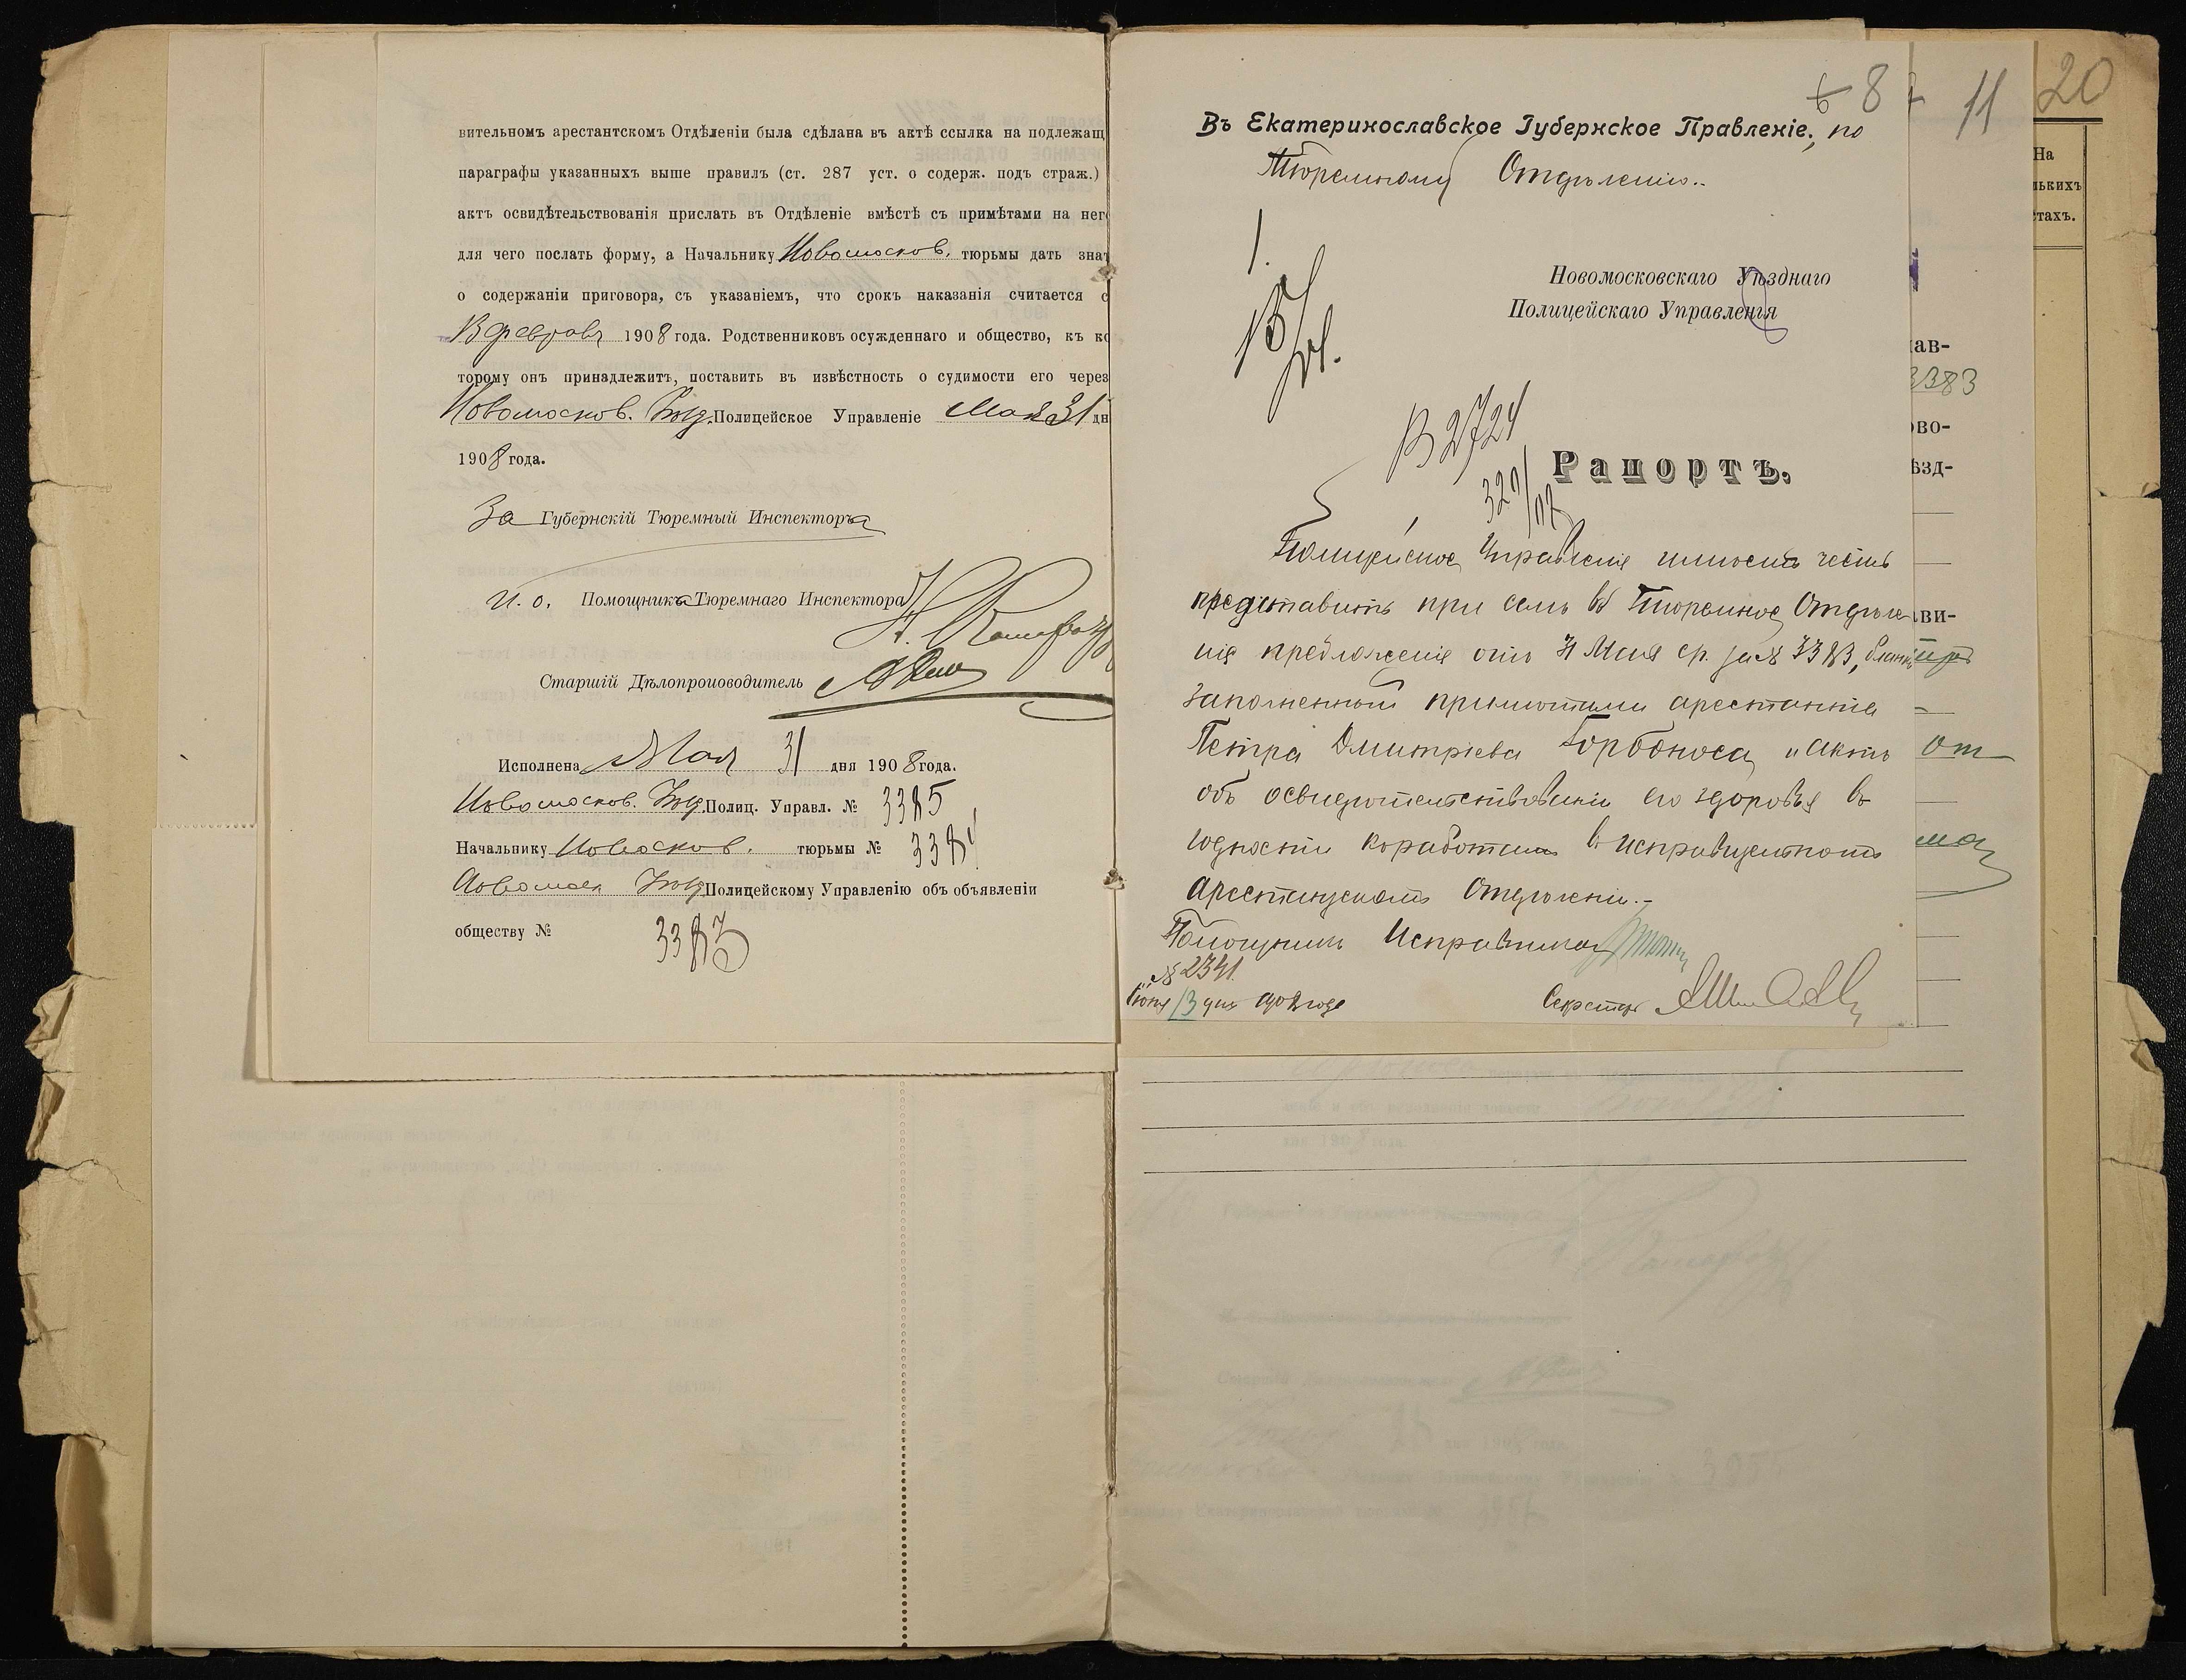 вительномъ арестантскомъ Отдѣленіи была сдѣлана въ актѣ ссылка на подлежащ
параграфы указанныхъ выше правилъ (ст. 287 уст. о содерж. подъ страж.)
актъ освидѣтельствованія прислать въ Отдѣленіе вмѣстѣ съ примѣтами на него
для чего послать форму, а Начальнику Новомосков. тюрьмы дать знат
о содержаніи приговора, съ указаніемъ, что срокъ наказанія считается с
13 февраля 1908 года. Родственниковъ осужденнаго и общество, къ ко
торому онъ принадлежитъ, поставить въ извѣстность о судимости его через
Новомосков. Уѣзд. Полицейское Управленіе Мая 31 дн
1908 года.
За Губернскій Тюремный Инспекторъ
И. о. Помощника Тюремнаго Инспектора
Старшій Дѣлопроизводитель
Исполнена Мая 31 дня 1908 года.
Новомосков. Уѣзд. Полиц. Управл. № 3385
Начальнику Новомосков. тюрьмы № 3384
Новомоск Уѣзд Полицейскому Управленію объ объявленіи
обществу № 3383
6 8
Въ Екатеринославское Губернское Правленіе, по
Тюремному Отдѣленію.
Новомосковскаго Уѣзднаго
Полицейскаго Управленія
В 2724
320/07
Рапортъ.
Полицейское Управленіе имѣетъ честь
представить при семъ въ Тюремное Отдѣле
нія предложенія отъ 31 Мая ср. за № 3383, бланкъ
заполненный примѣтами арестанта
Петра Дмитріева Горбоноса, и актъ
объ освидѣтельствованіи его здоровья въ
годности къ работамъ въ исправительномъ
Арестантскомъ Отдѣленіи.
Помощникъ Исправника
№ 2341
Іюня 13 дня 1908 года
Секретарь
11
20
На
ькихъ
стахъ.
ав-
3383
ово-
ѣзд-
ви-
от